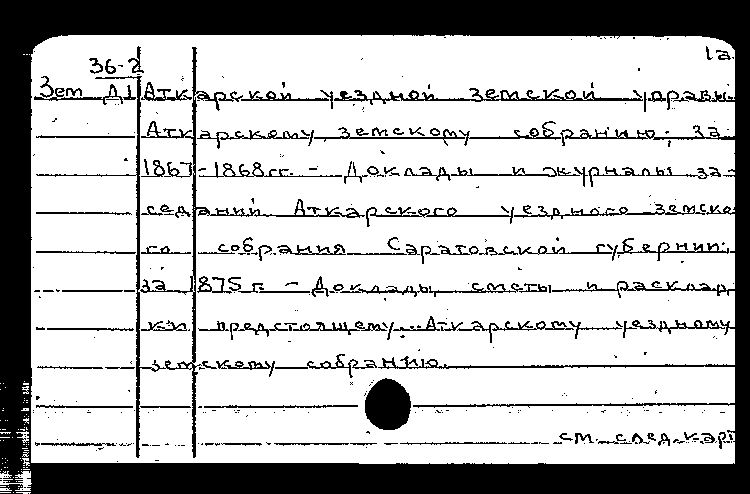 1а
36-2
Зем Д1 Аткарской уездной земской управы.
Аткарскому земскому собранию; за
1867-1868 гг. - Доклады и журналы за-
седаний Аткарского уездного земско
го собрания Саратовской губернии;
за 1875 г. - Доклады, сметы и расклад
ки предстоящему...Аткарскому уездному
земскому собранию.
см. след. карт